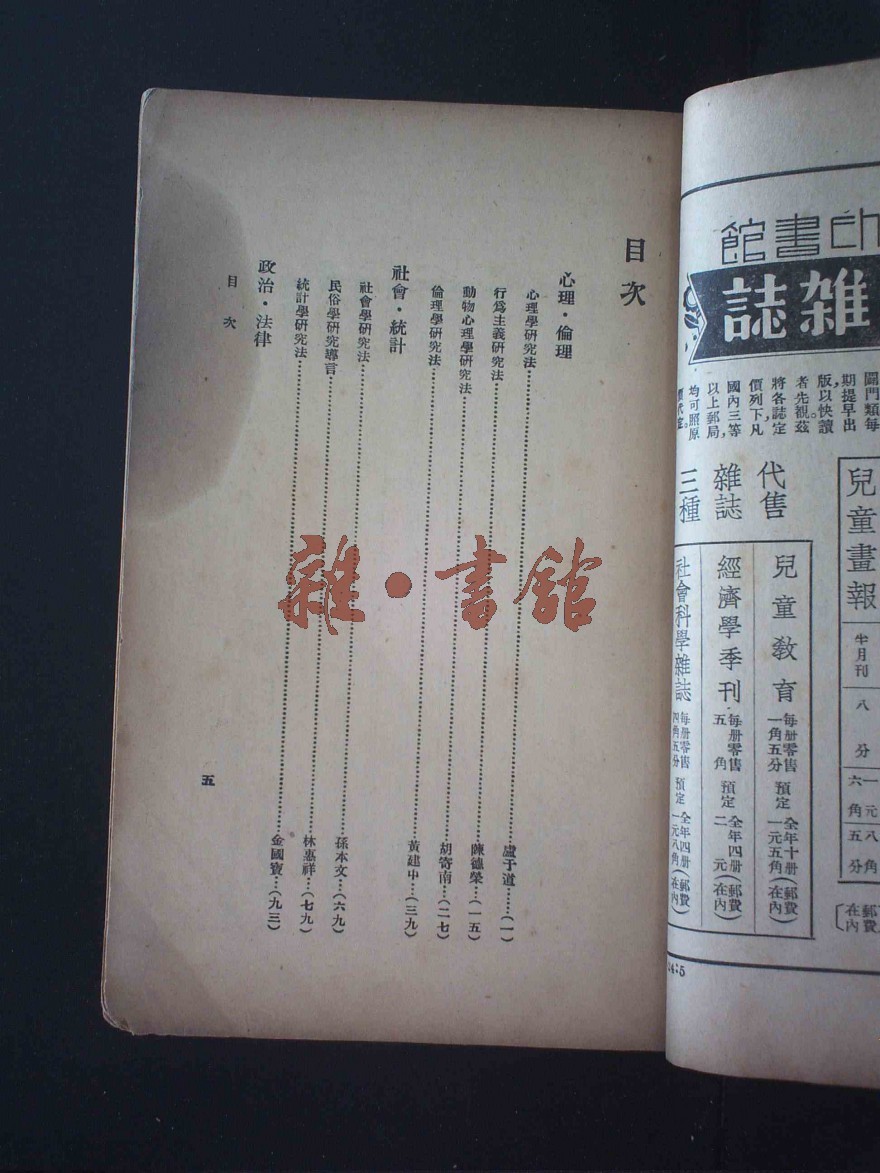 印書館
雜誌
闢門類每
期提早出
版，以快讀
者先觀茲
將各誌定
價列下，凡
國內三等
以上郵局，
均可照原
價代定。
兒童畫報
半月刊
八分
一元八角
六角五分
郵費
在內
代售
雜誌
三種
兒童教育
每册零售
一角五分
預定
全年十册(郵費
一元五角(在內
經濟學季刊
每册零售
五角
預定
全年四册(郵費
二元(在內
社會科學雜誌
每册零售
四角五分
預定
全年四册(郵費
一元八角(在內
24:5
目次
心理·倫理
心理學研究法……盧于道……(一)
行爲主義研究法……陳德榮…(一五)
動物心理學研究法……胡寄南…(二七)
倫理學研究法……黃建中…(三九)
社會·統計
社會學研究法……孫本文…(六九)
民俗學研究導言……林惠祥…(七九)
統計學研究法……金國寶…(九三)
政治·法律
目次
五
雜·書館